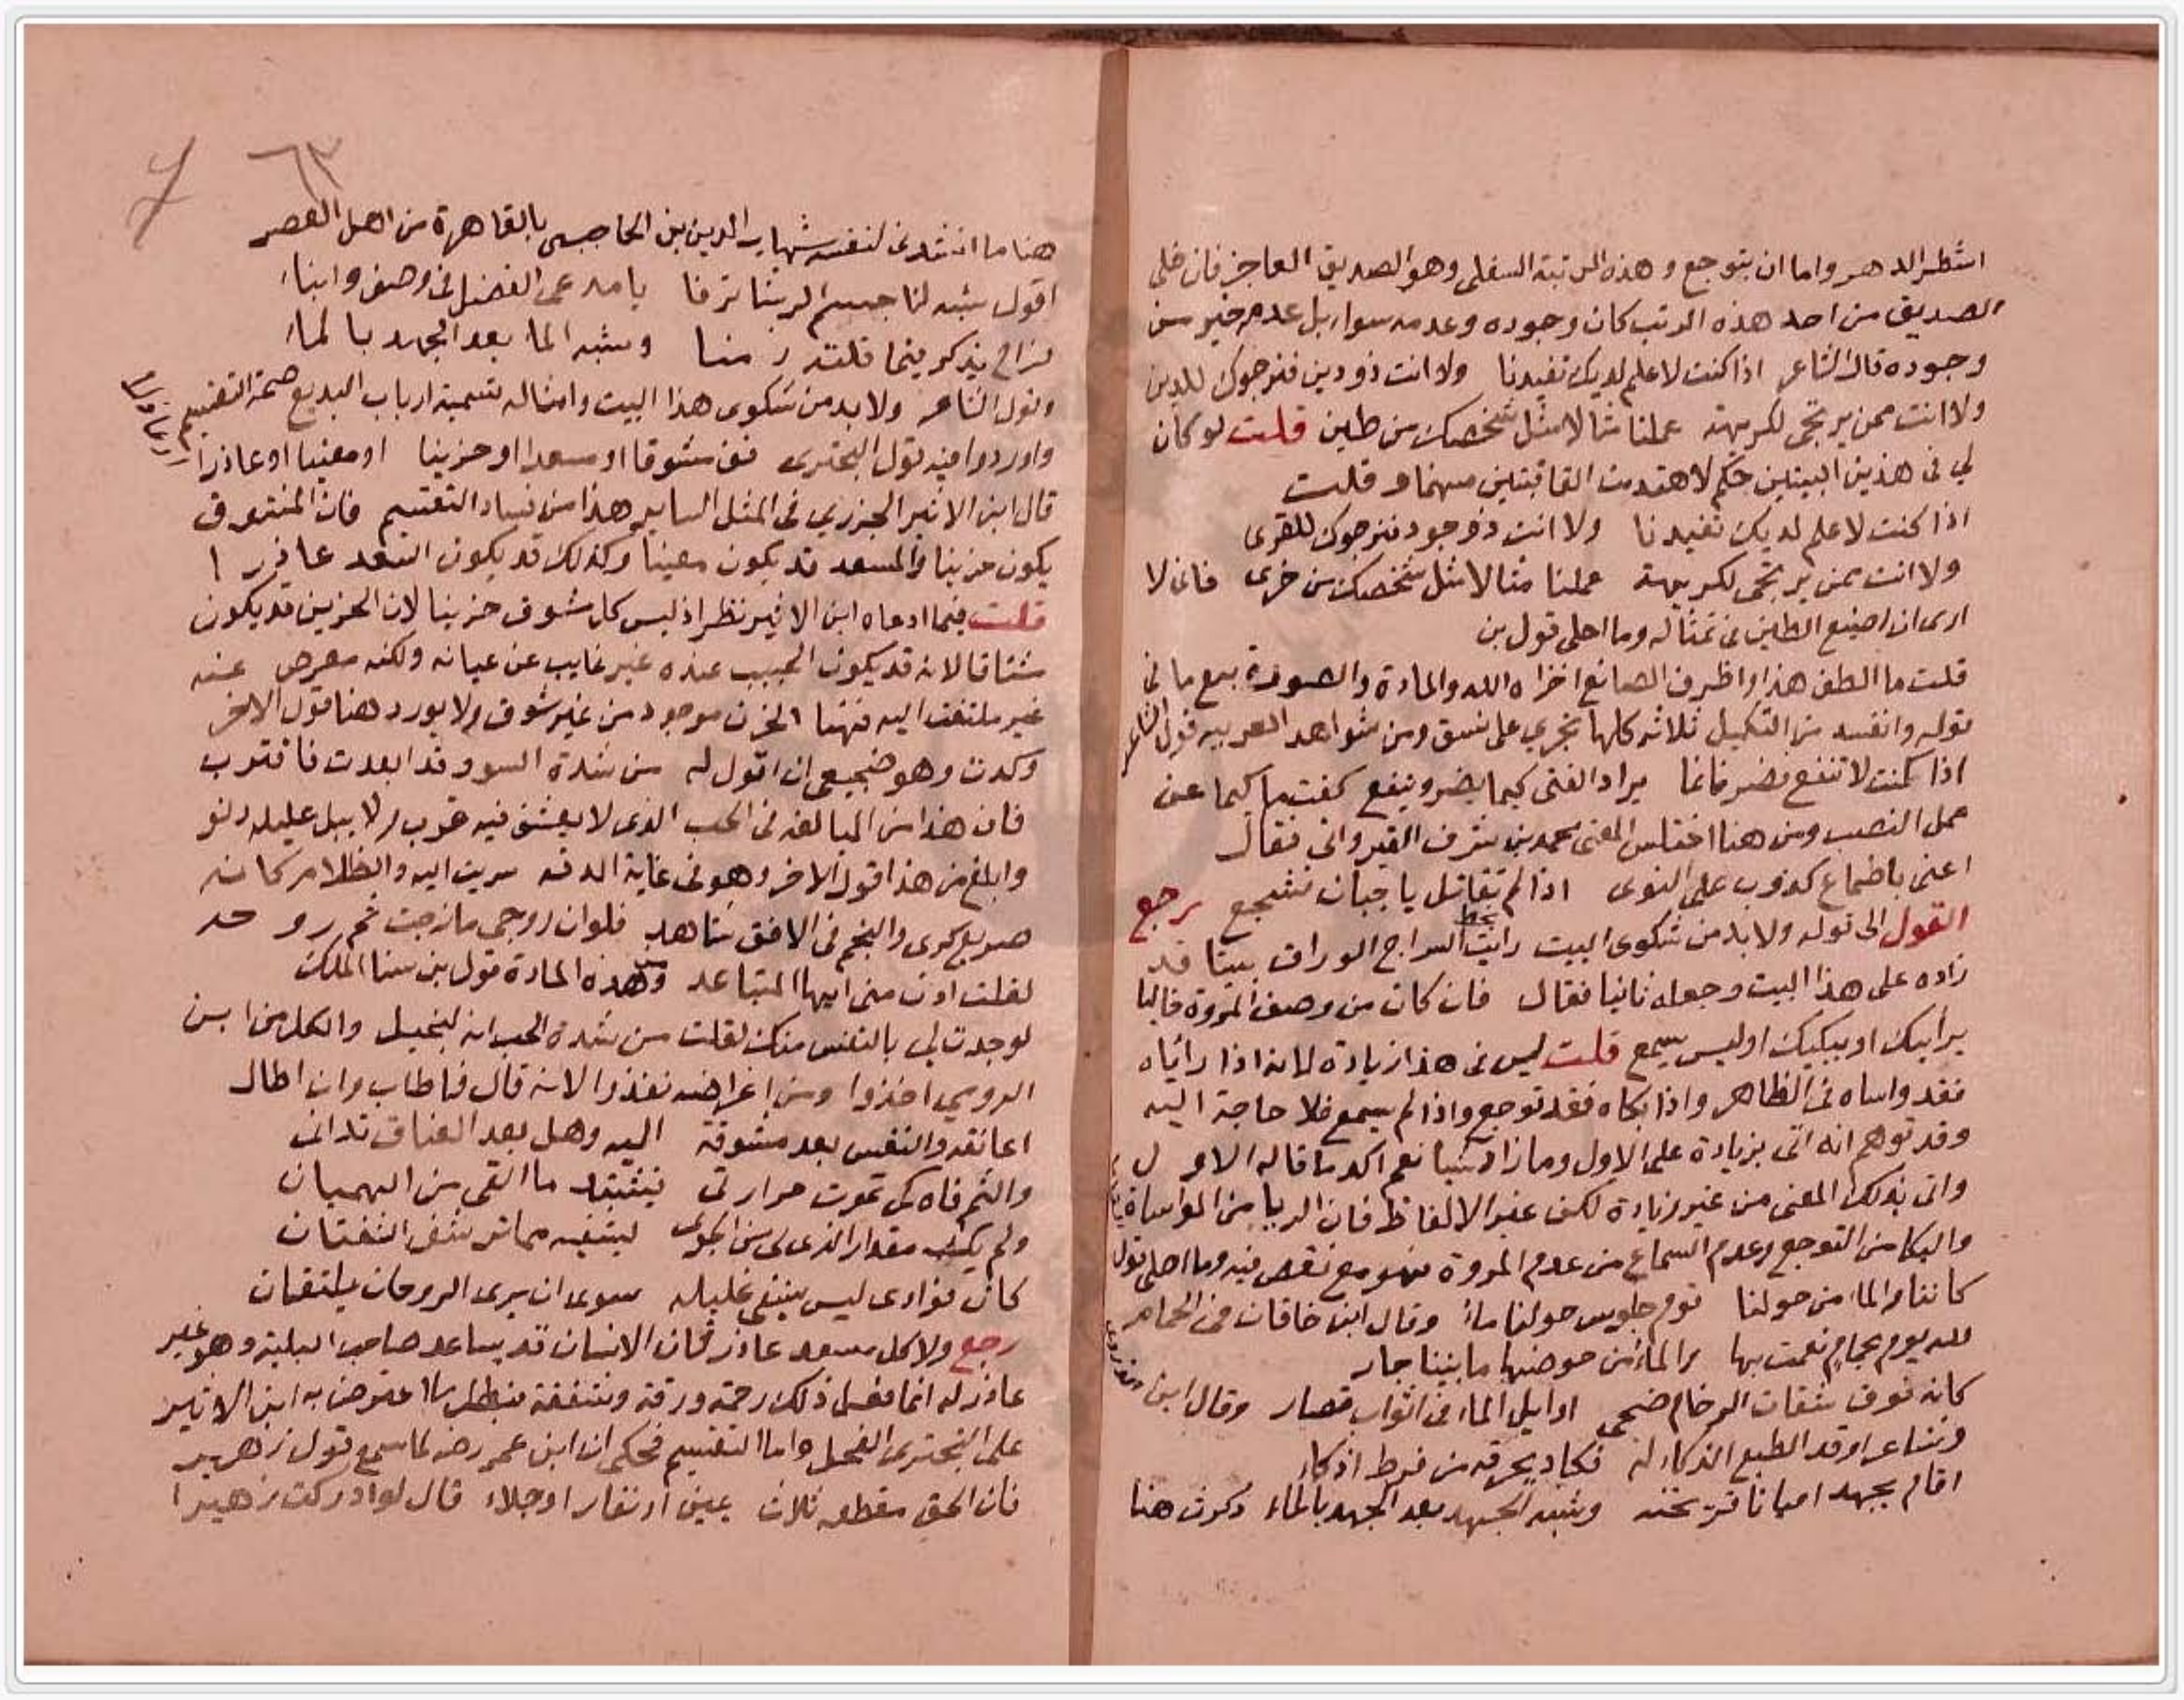 اشطر الدهر واما ان يتوجع وهذه المرتبة السفلى وهو الصديق العاجز فان خلى
الصديق من احد هذه الرتب كان وجوده وعدمه سواء بل عدمه خير من
وجوده قال الشاعر اذا كنت لا علم لديك تفيدنا ولا انت ذو دين فنرجوك للدين
ولا انت ممن يرتجى لكريهة عملنا مثالا مثل شخصك من طين قلت لو كان
لي في هذين البيتين حكم لا هتدمت القافيتين منهما وقلت
اذا كنت لا علم لديك تفيدنا ولا انت ذو جود فنرجوك للقرى
ولا انت ممن يرتجى لكريهة عملنا مثالا مثل شخصك من خرى فانى لا
ارى ان اضيع الطين في تمثاله وما احلى قول بن
قلت ما الطف هذا واظرف الصانع اخزاه الله والمادة والصورة بيع ما في
قوله وانفسد من التكميل ثلاثه كلها تجري على نسق ومن شواهد العربيه قول الشاعر
اذا كنت لا تنفع فضر فانما يراد الفتى كيما يضر وينفع كفت ما كيما عن
عمل النصب ومن هنا اختلس المعنى محمد بن شرف القيرواني فقال
اعنى باطماع كذوب على النوى اذا لم تقاتل يا جبان تشجع رجع
القول الى قوله ولا بد من شكوى البيت رايت بخط السراج الوراق بيتا قد
زاده على هذا البيت وجعله ثانيا فقال فان كان من وصف المروة خاليا
يرأيك او يبكيك او ليس يسمع قلت ليس في هذا زيادة لانه اذا رأياه
فقد واساه في الظاهر واذا بكاه فقد توجع واذا لم يسمع فلا حاجة اليه
وقد توهم انه اتى بزيادة على الاول وما زاد شيا نعم اكد ما قاله الاول
واتى بذلك المعنى من غير زيادة لكن غير الالفاظ فان الريا من المواساة
والبكا من التوجع وعدم السماع من عدم المروة فهو مع نقص فيه وما احلى قول
كاننا والما من حولنا قوم جلوس حولنا ماء وقال ابن خاقان في الحمام
لله يوم بحمام نعمت بها والماء من حوضها ما بيننا جار
كانه فوق شقات الرخام ضحى اوايل الماء في اثواب قصار وقال ابن الذروى
وشاعر اوقد الطبع الذكاء له فكاد يحرقه من فرط اذكاء
اقام يجهد اميانا قريحته وشبه الجهد بعد الجهد بالماء ذكرت هنا
٦٣
هنا ما انشدنى لنفسه شهاب الدين بن الحاجبى بالقاهرة من اهل العصر
اقول شبه لنا جسم الرشا ترفا يا من عى الفضل فى وصف وانباء
فراح يذكر فيما قلته زمنا وشبه الما بعد الجهد بالماء
وقول الشاعر ولا بد من شكوى هذا البيت وامثاله تسميه ارباب البديع صحة التقسيم
واوردوا فيه قول البحترى قف مشوقا او مسعدا او حزينا او معينا او عاذرا
قال ابن الاثير الجزري في المثل الساير هذا من فساد التقسيم فان المتشوق
يكون حزينا والمسعد قد يكون معينا وكذلك قد يكون المسعد عاذرا
قلت فيما ادعاه ابن الاثير نظر اذ ليس كل مشوق حزينا لان الحزين قد يكون
مشتاقا لانه قد يكون الحبيب عنده غير غايب عن عيانه ولكنه معرض عنه
غير ملتفت اليه فهنا الحزن موجود من غير شوق ولا يورد هنا قول الاخر
وكدت وهو ضجيعى ان اقول له من شدة السوق قد ابعدت فاقترب
فان هذا من المبالغه في الحب الذى لا يعشق فيه قرب ولا يبل عليله دنو
وابلغ من هذا قول الاخر وهو فى غاية الدقه سريت اليه والظلام كانه
صريع كرى والنجم فى الافق شاهد فلوان روحى مازجت ثم روحه
لقلت ادن منى ايها المتباعد وهذه المادة قول بن سنا الملك
لو جدت لي بالنفس منك لقلت من شدة الحب انه لبخيل والكل من ابن
الرومي اخذوا ومن اغراضه نفذوا لانه قال فاطاب وان اطال
اعانقه والنفس بعد مشوقة اليه وهل بعد العناق تدانى
والثم فاه كى تموت حرارتى فيشتد ما القى من الهميان
ولم يك مقدار الذى بى من الجوى ليشفيه مما ترشف الشفتان
كان فوادى ليس يشفى غليله سوى ان يرى الروحان يلتقيان
رجع ولا كل مسعد عاذر فان الانسان قد يساعد صاحب البلية وهو غير
عاذر له انما فعل ذلك رحمة ورقة وشفقة فبطل ما اعترض به ابن الاثير
على البحترى الفحل واما التقسيم فحكى ان ابن عمر رضه لما سمع قول زهير
فان الحق مقطعه ثلاث يمين او نفار او جلاء قال لو ادركت زهيرا